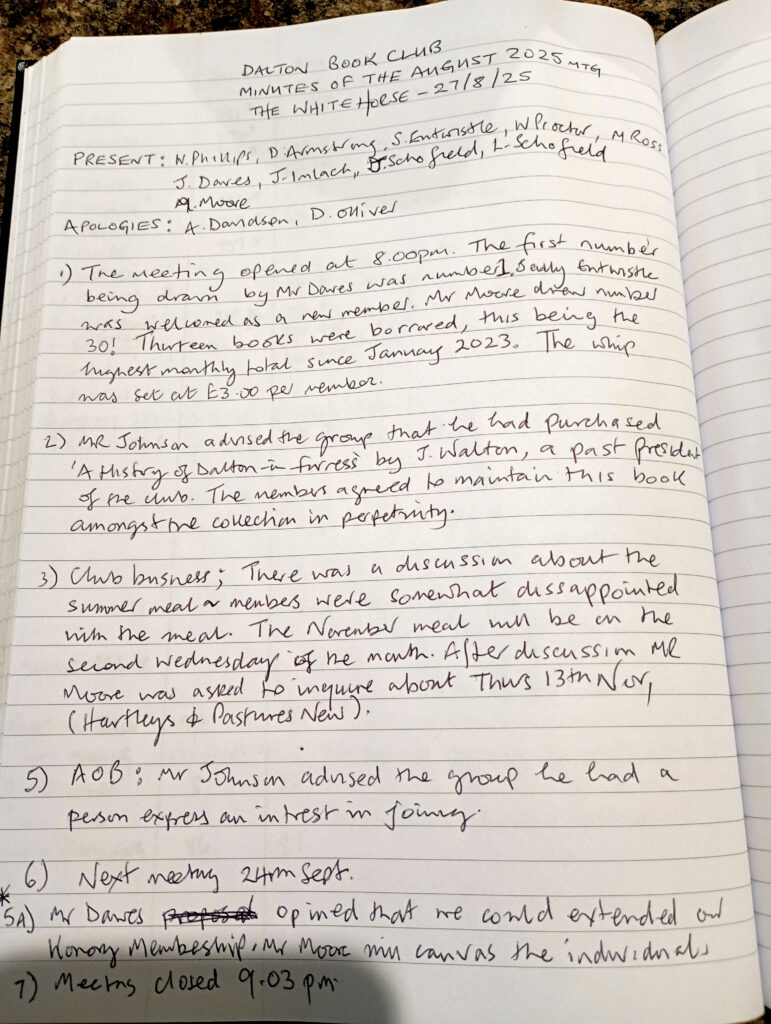 DALTON BOOK CLUB
MINUTES OF THE AUGUST 2025 MTG
THE WHITE HORSE - 27/8/25
PRESENT: N. Phillips, D Armstrong, S. Entwistle, W Proctor, M Ross
J. Dawes, J. Imlach, J. Schofield, L. Schofield
A. Moore
APOLOGIES: A. Davidson, D. Olliver
1) The meeting opened at 8.00pm. The first number
being drawn by Mr Dawes was number 1. Sally Entwistle
was welcomed as a new member. Mr Moore drew number
30! Thirteen books were borrowed, this being the
highest monthly total since January 2023. The whip
was set at £3.00 per member.
2) MR Johnson advised the group that he had purchased
'A History of Dalton-in-furness' by J. Walton, a past president
of the club. The members agreed to maintain this book
amongst the collection in perpetuity.
3) Club busness; There was a discussion about the
summer meal ~ members were somewhat dissappointed
with the meal. The November meal will be on the
second Wednesday of the month. After discussion MR
Moore was asked to inquire about Thurs 13th Nov,
(Hartleys & Pastures New).
5) AOB; Mr Johnson advised the group he had a
person express an intrest in joining.
6) Next meeting 24th Sept.
* 5A) Mr Dawes opined that we could extended our
Honory Membeship. Mr Moore will canvas the individuals
7) Meeting closed 9.03 pm